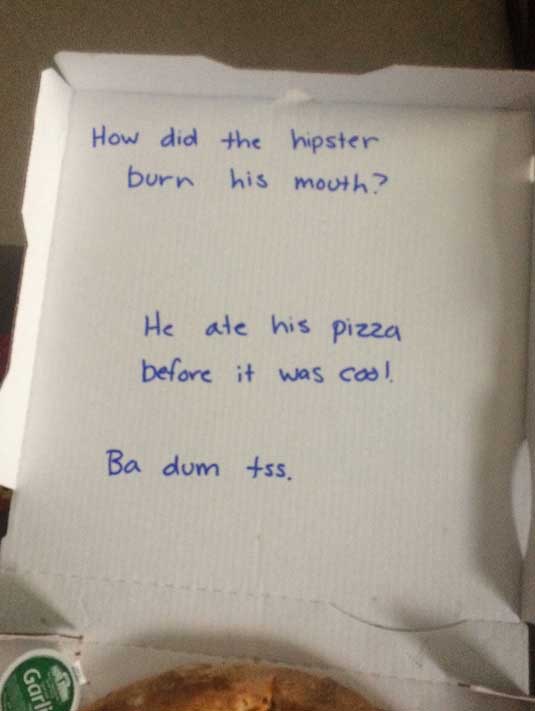 How did the hipster
burn his mouth?
He ate his pizza
before it was cool.
Ba dum tss.
Garli